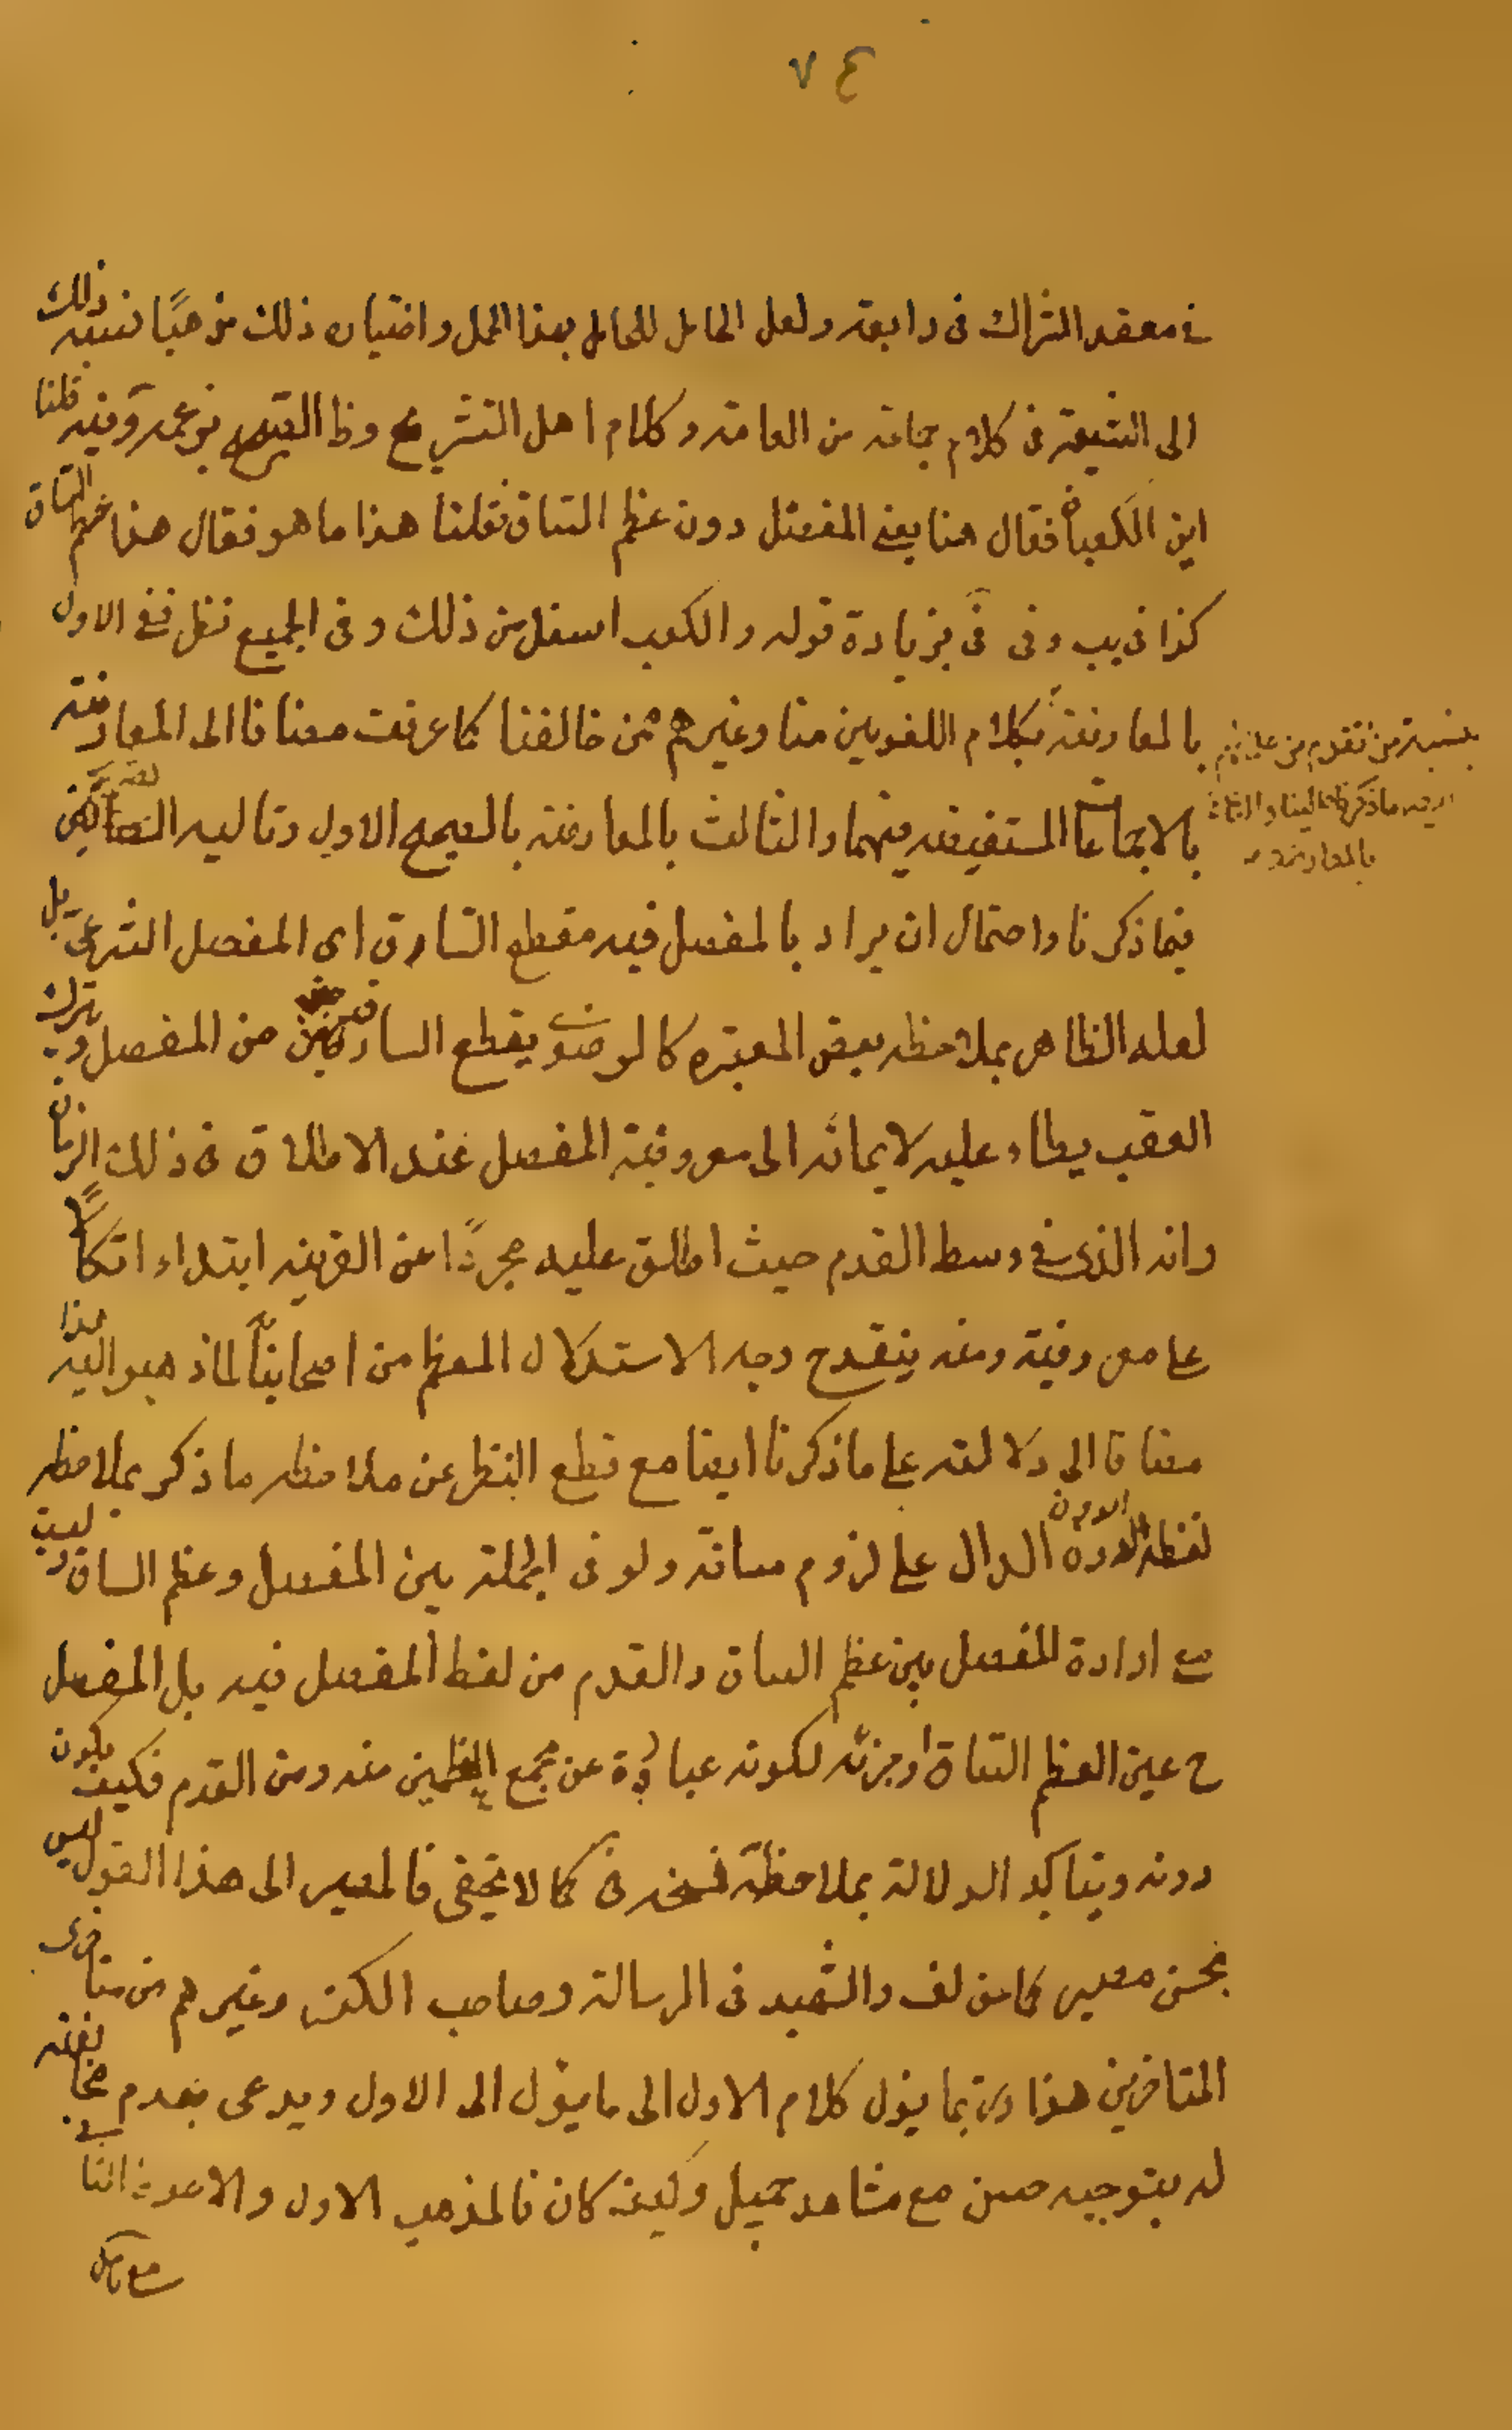 ٧٤
في معقد الشراك في رابعة ولعل الحامل للحامل بهذا الحمل واختياره ذلك مذهبًا نسبته ذلك
الى الشيعة في كلام جماعة من العامة وكلام اهل التشريح وظ الصحيح وفيه قلنا
اين الكعبان فقال هنا يعني المفصل دون عظم الساق فقلنا هذا ما هو فقال هذا عظم الساق
كذا في يب وفي في بزيادة قوله والكعب اسفل من ذلك وفي الجميع نظر ففي الاول
بالمعارضة بكلام اللغويين منا وغيرهم ممن خالفنا كما عرفت مضافا الى المعارضة
بنسبة من تقدم من علمائهم
ما ذكرنا الينا والثاني
بالمعارضة
بالاجماعات المستفيضة فيهما والثالث بالمعارضة بالصحيح الاول وتالييه
فيما ذكرنا واحتمال ان يراد بالمفصل فيه مقطع السارق اي المفصل الشرعي بل
لعله الظاهر بملاحظة بعض المعتبرة كالرضوي يقطع السارق من المفصل ويترك
العقب يطاء عليه لايمائه الى معروفية المفصل عند الاطلاق في ذلك الزمان
وانه الذي في وسط القدم حيث اطلق عليه مجردًا عن القرينة ابتداء اتكالًا
على معروفيته ومنه ينقدح وجه الاستدلال المعظم من اصحابنا لما ذهبوا اليه هذا
مضافا الى دلالته على ما ذكرنا ايضا مع قطع النظر عن ملاحظة ما ذكر بملاحظة
لفظة الدون الدال على لزوم مسافة ولو في الجملة بين المفصل وعظم الساق وليست
مع ارادة المفصل بين عظم الساق والقدم من لفظ المفصل فيه بل المفصل
ح عين العظم الساق او جزئه لكونه عبارة عن مجمع العظمين منه ومن القدم فكيف يكون
دونه ويتاكد الدلالة بملاحظة نسخة في كما لا يخفى فالمصير الى هذا القول ليس
بحسن مصير كما عن لف والشهيد في الرسالة وصاحب الكنز وغيرهم من متاخري
المتاخرين هذا وربما يئول كلام الاول الى ما يئول الى الاول ويدعى بعدم مخالفته
له بتوجيه حسن مع شاهد جميل وكيف كان فالمذهب الاول والاحوط